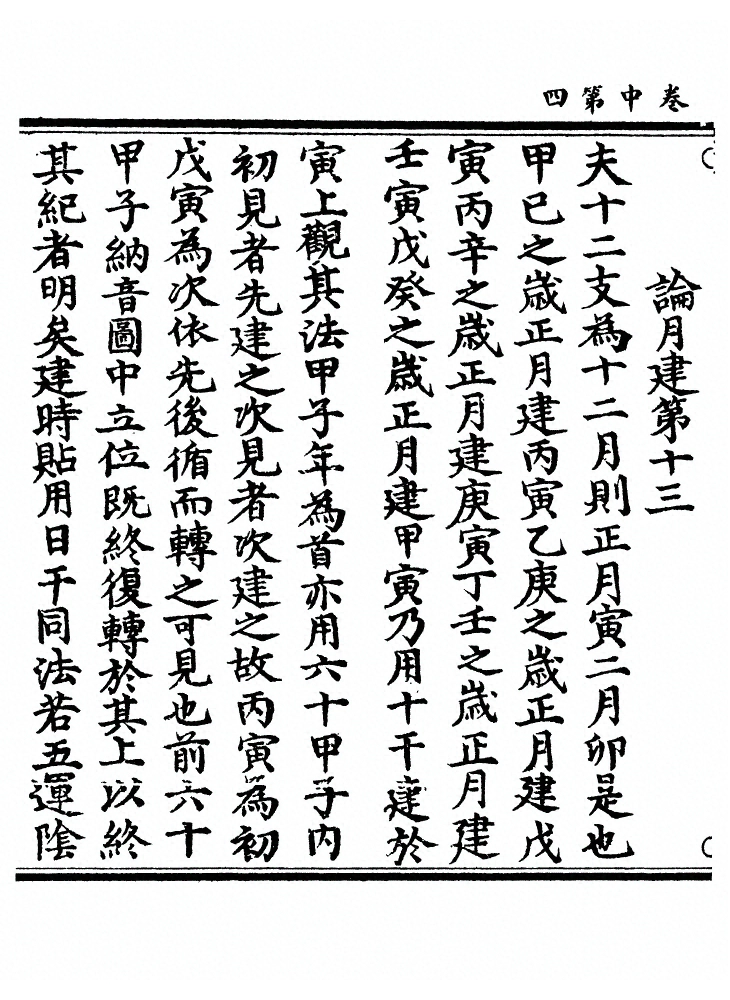 卷中第四
論月建第十三
夫十二支為十二月則正月寅二月卯是也
甲已之歲正月建丙寅乙庚之歲正月建戊
寅丙辛之歲正月建庚寅丁壬之歲正月建
壬寅戊癸之歲正月建甲寅乃用十干建於
寅上觀其法甲子年為首亦用六十甲子內
初見者先建之次見者次建之故丙寅為初
戊寅為次依先後循而轉之可見也前六十
甲子納音圖中立位既終復轉於其上以終
其紀者明矣建時貼用日干同法若五運陰